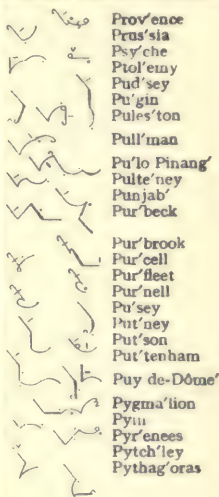 Prov′ence
Prus′sia
Psy′che
Ptol′emy
Pud′sey
Pu′gin
Pules′ton
Pull′man
Pu′lo Pinang′
Pulte′ney
Punjab′
Pur′beck
Pur′brook
Pur′cell
Pur′fleet
Pur′nell
Pu′sey
Put′ney
Put′son
Put′tenham
Puy de-Dôme′
Pygma′lion
Pym
Pyr′enees
Pytch′ley
Pythag′oras